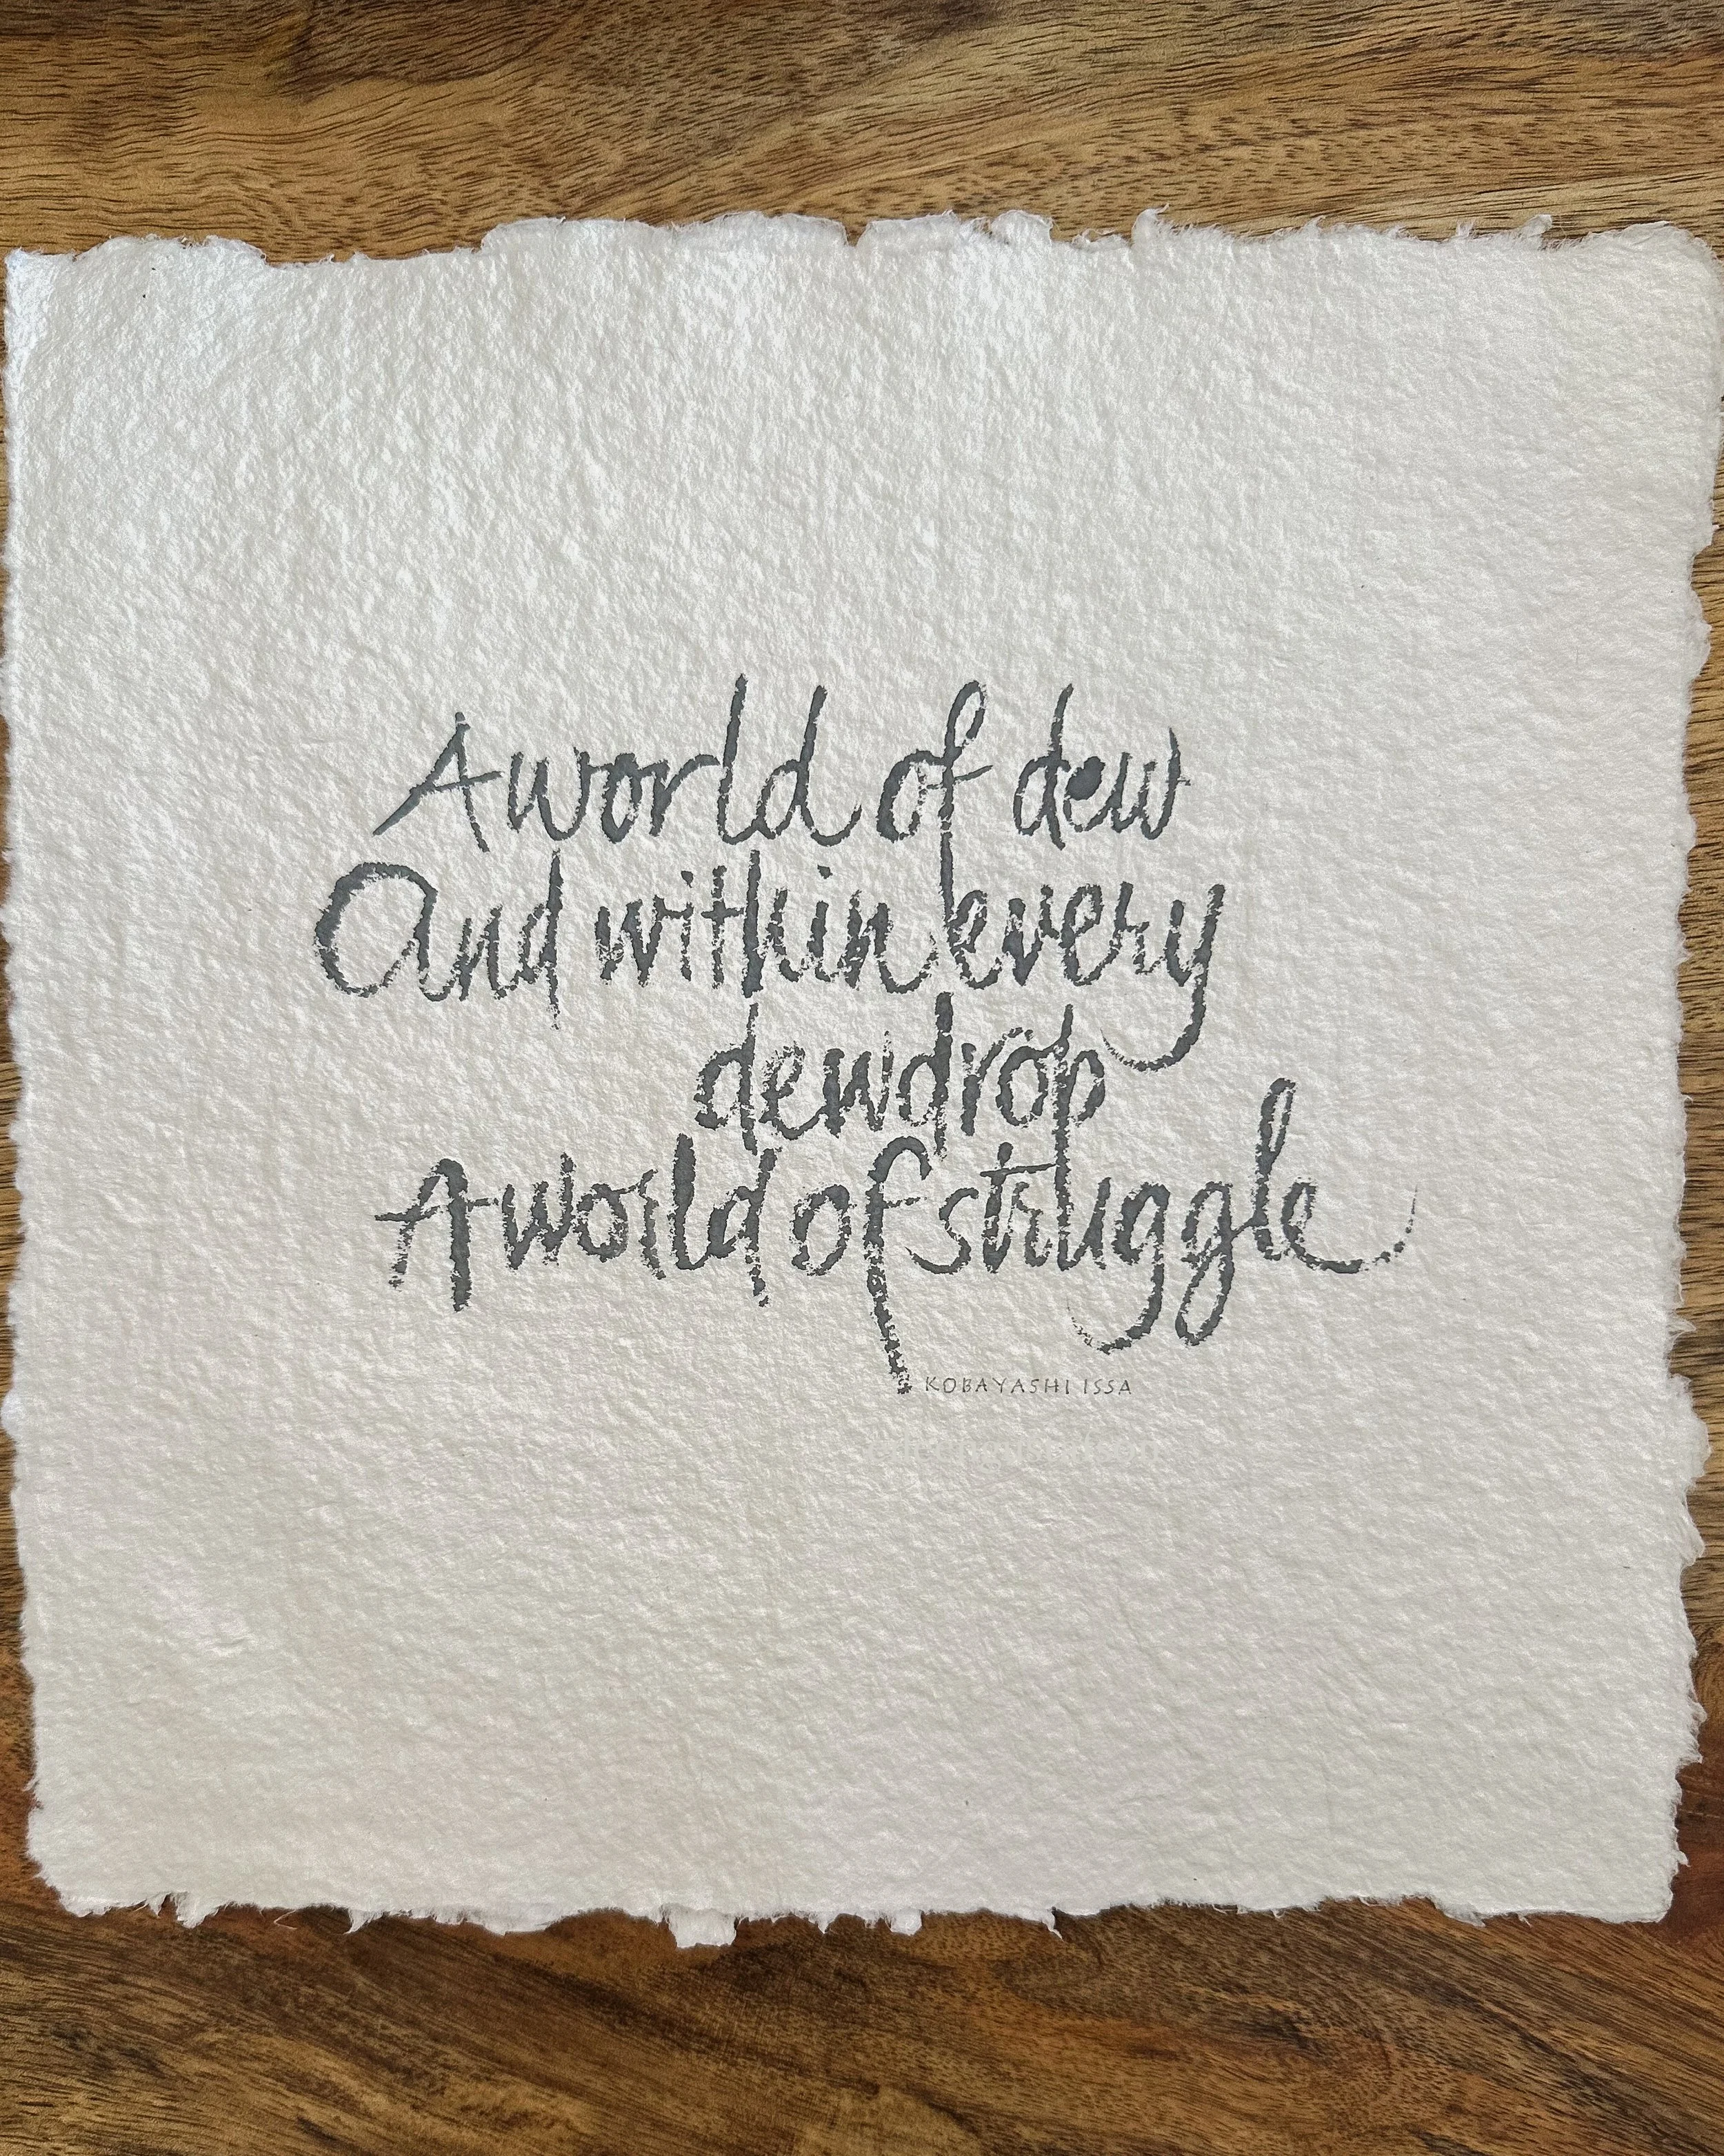 A world of dew
And within every
dewdrop
A world of struggle
KOBAYASHI ISSA